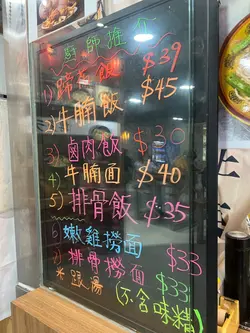 廚師推介
1) 蹄髈飯 $39
2) 牛腩飯 $45
3) 鹵肉飯 $30
4) 牛腩面 $40
5) 排骨飯 $35
6) 嫩雞撈面 $33
7) 排骨撈面 $33
* 跟湯 (不含味精)